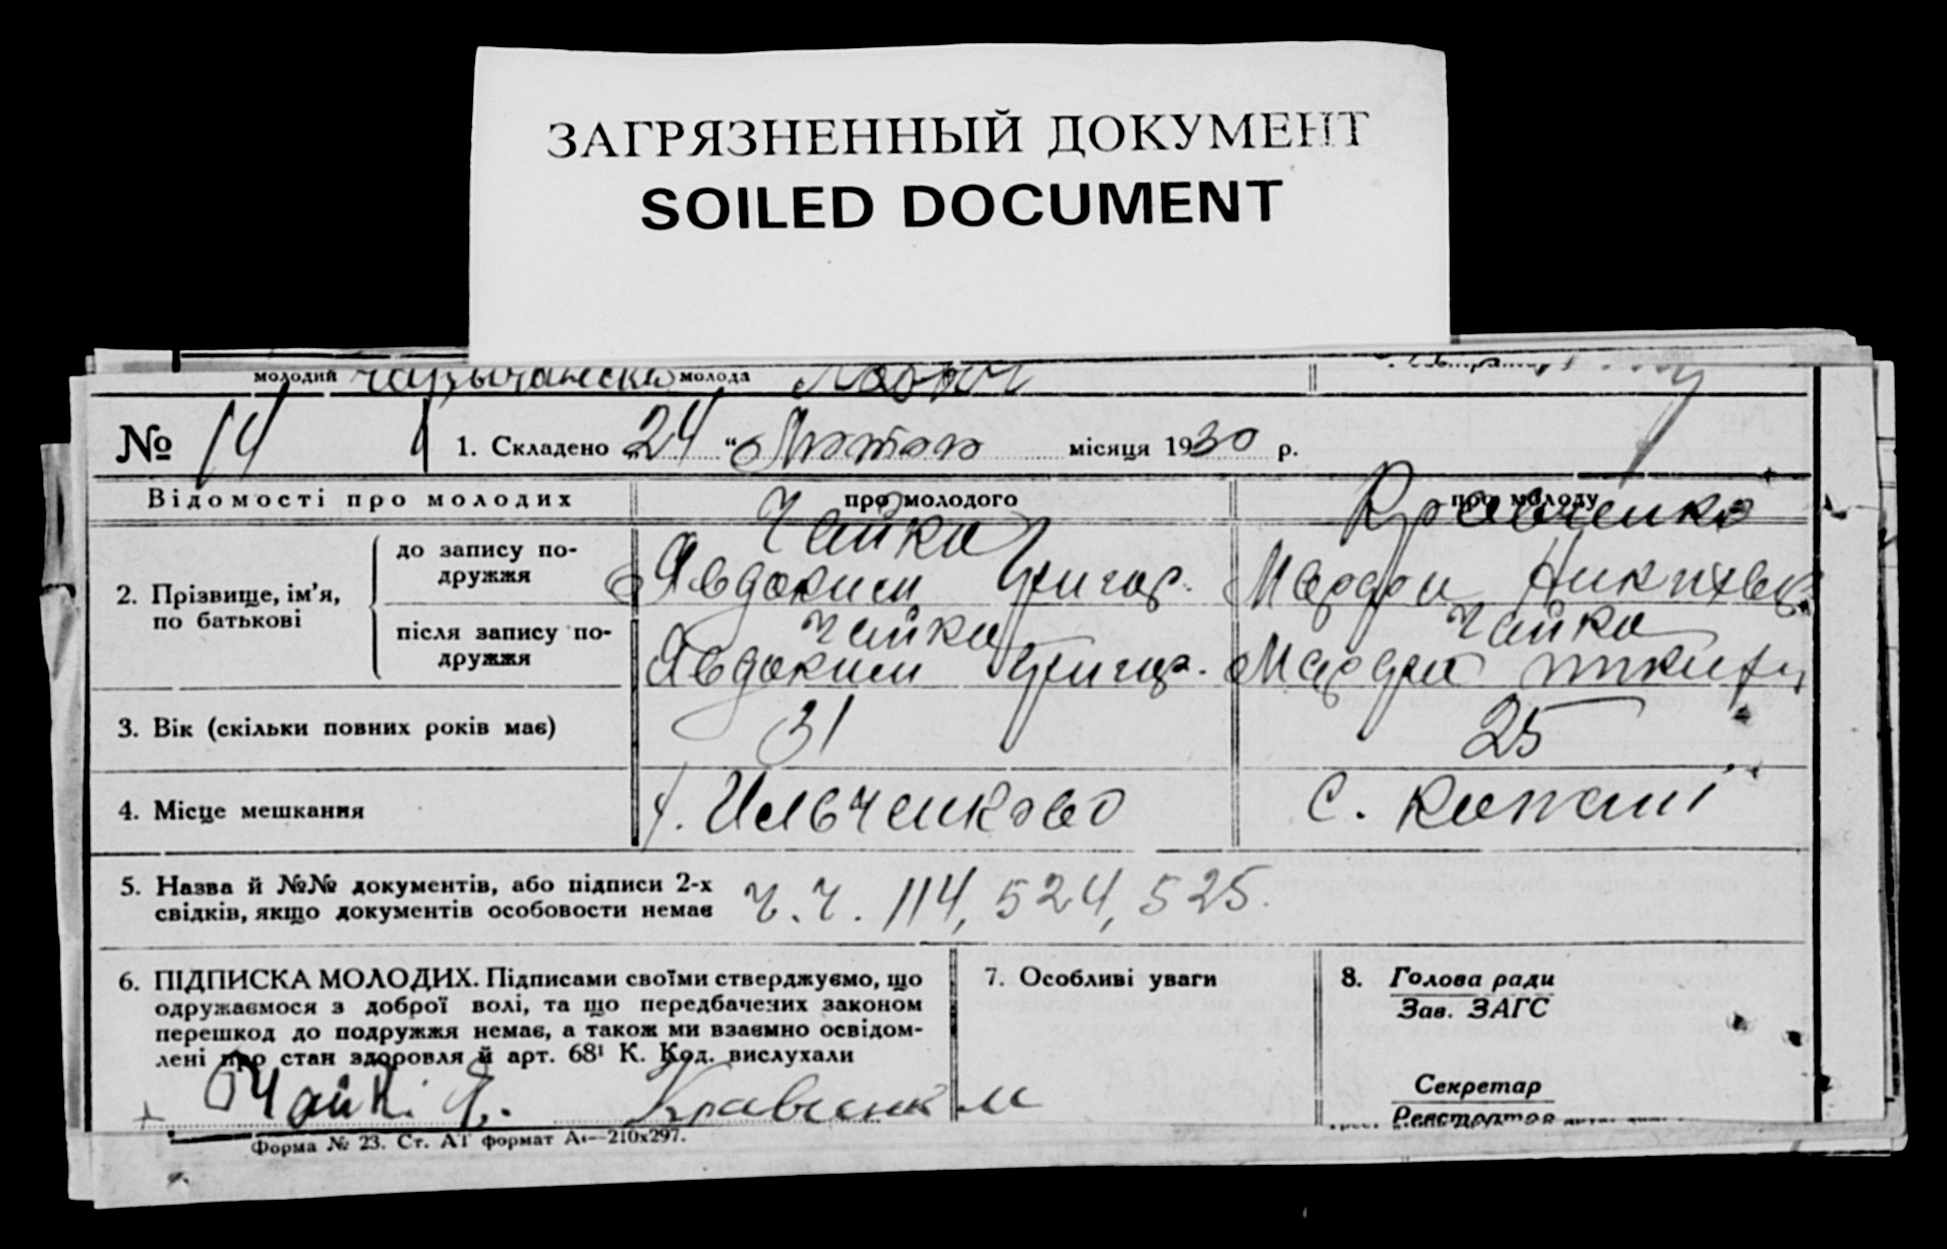 ЗАГРЯЗНЕННЫЙ ДОКУМЕНТ
SOILED DOCUMENT
молодий молода
№ 14 1. Складено „24“ Лютого місяця 1930 р.
Відомості про молодих про молодого про молоду
Чайка Кравченко
до запису по-
дружжя
Явдоким Григор. Марфа Никит
2. Прізвище, ім’я,
по батькові
Чайка Чайка
після запису по-
дружжя
Явдоким Григор. Марфа
3. Вік (скільки повних років має) 31 25
4. Місце мешкання х. Ильченково с. Копані
5. Назва й №№ документів, або підписи 2-х
свідків, якщо документів особовости немає
ч. ч. 114, 524, 525.
6. ПІДПИСКА МОЛОДИХ. Підписами своїми стверджуємо, що
одружаємося з доброї волі, та що передбачених законом
перешкод до подружжя немає, а також ми взаємно освідом-
лені про стан здоровля й арт. 68¹ К. Код. вислухали
Чайк Я. Кравченк М
7. Особливі уваги
8. Голова ради
Зав. ЗАГС
Секретар
Реєстратор
Форма № 23. Ст. АТ формат А₄—210х297.